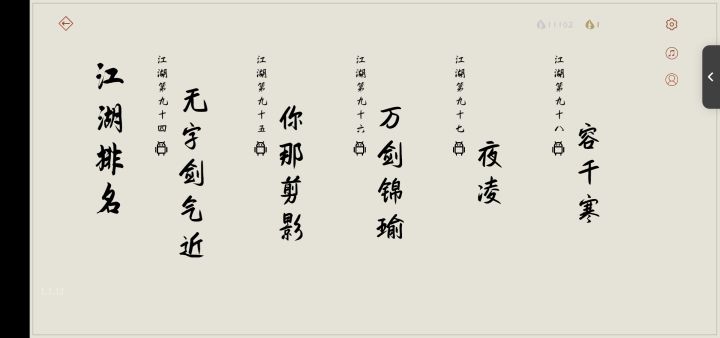 江湖排名
江湖第九十四
无字剑气近
江湖第九十五
你那剪影
江湖第九十六
万剑锦瑜
江湖第九十七
夜凌
江湖第九十八
容千寒
11102
1
1.1.11